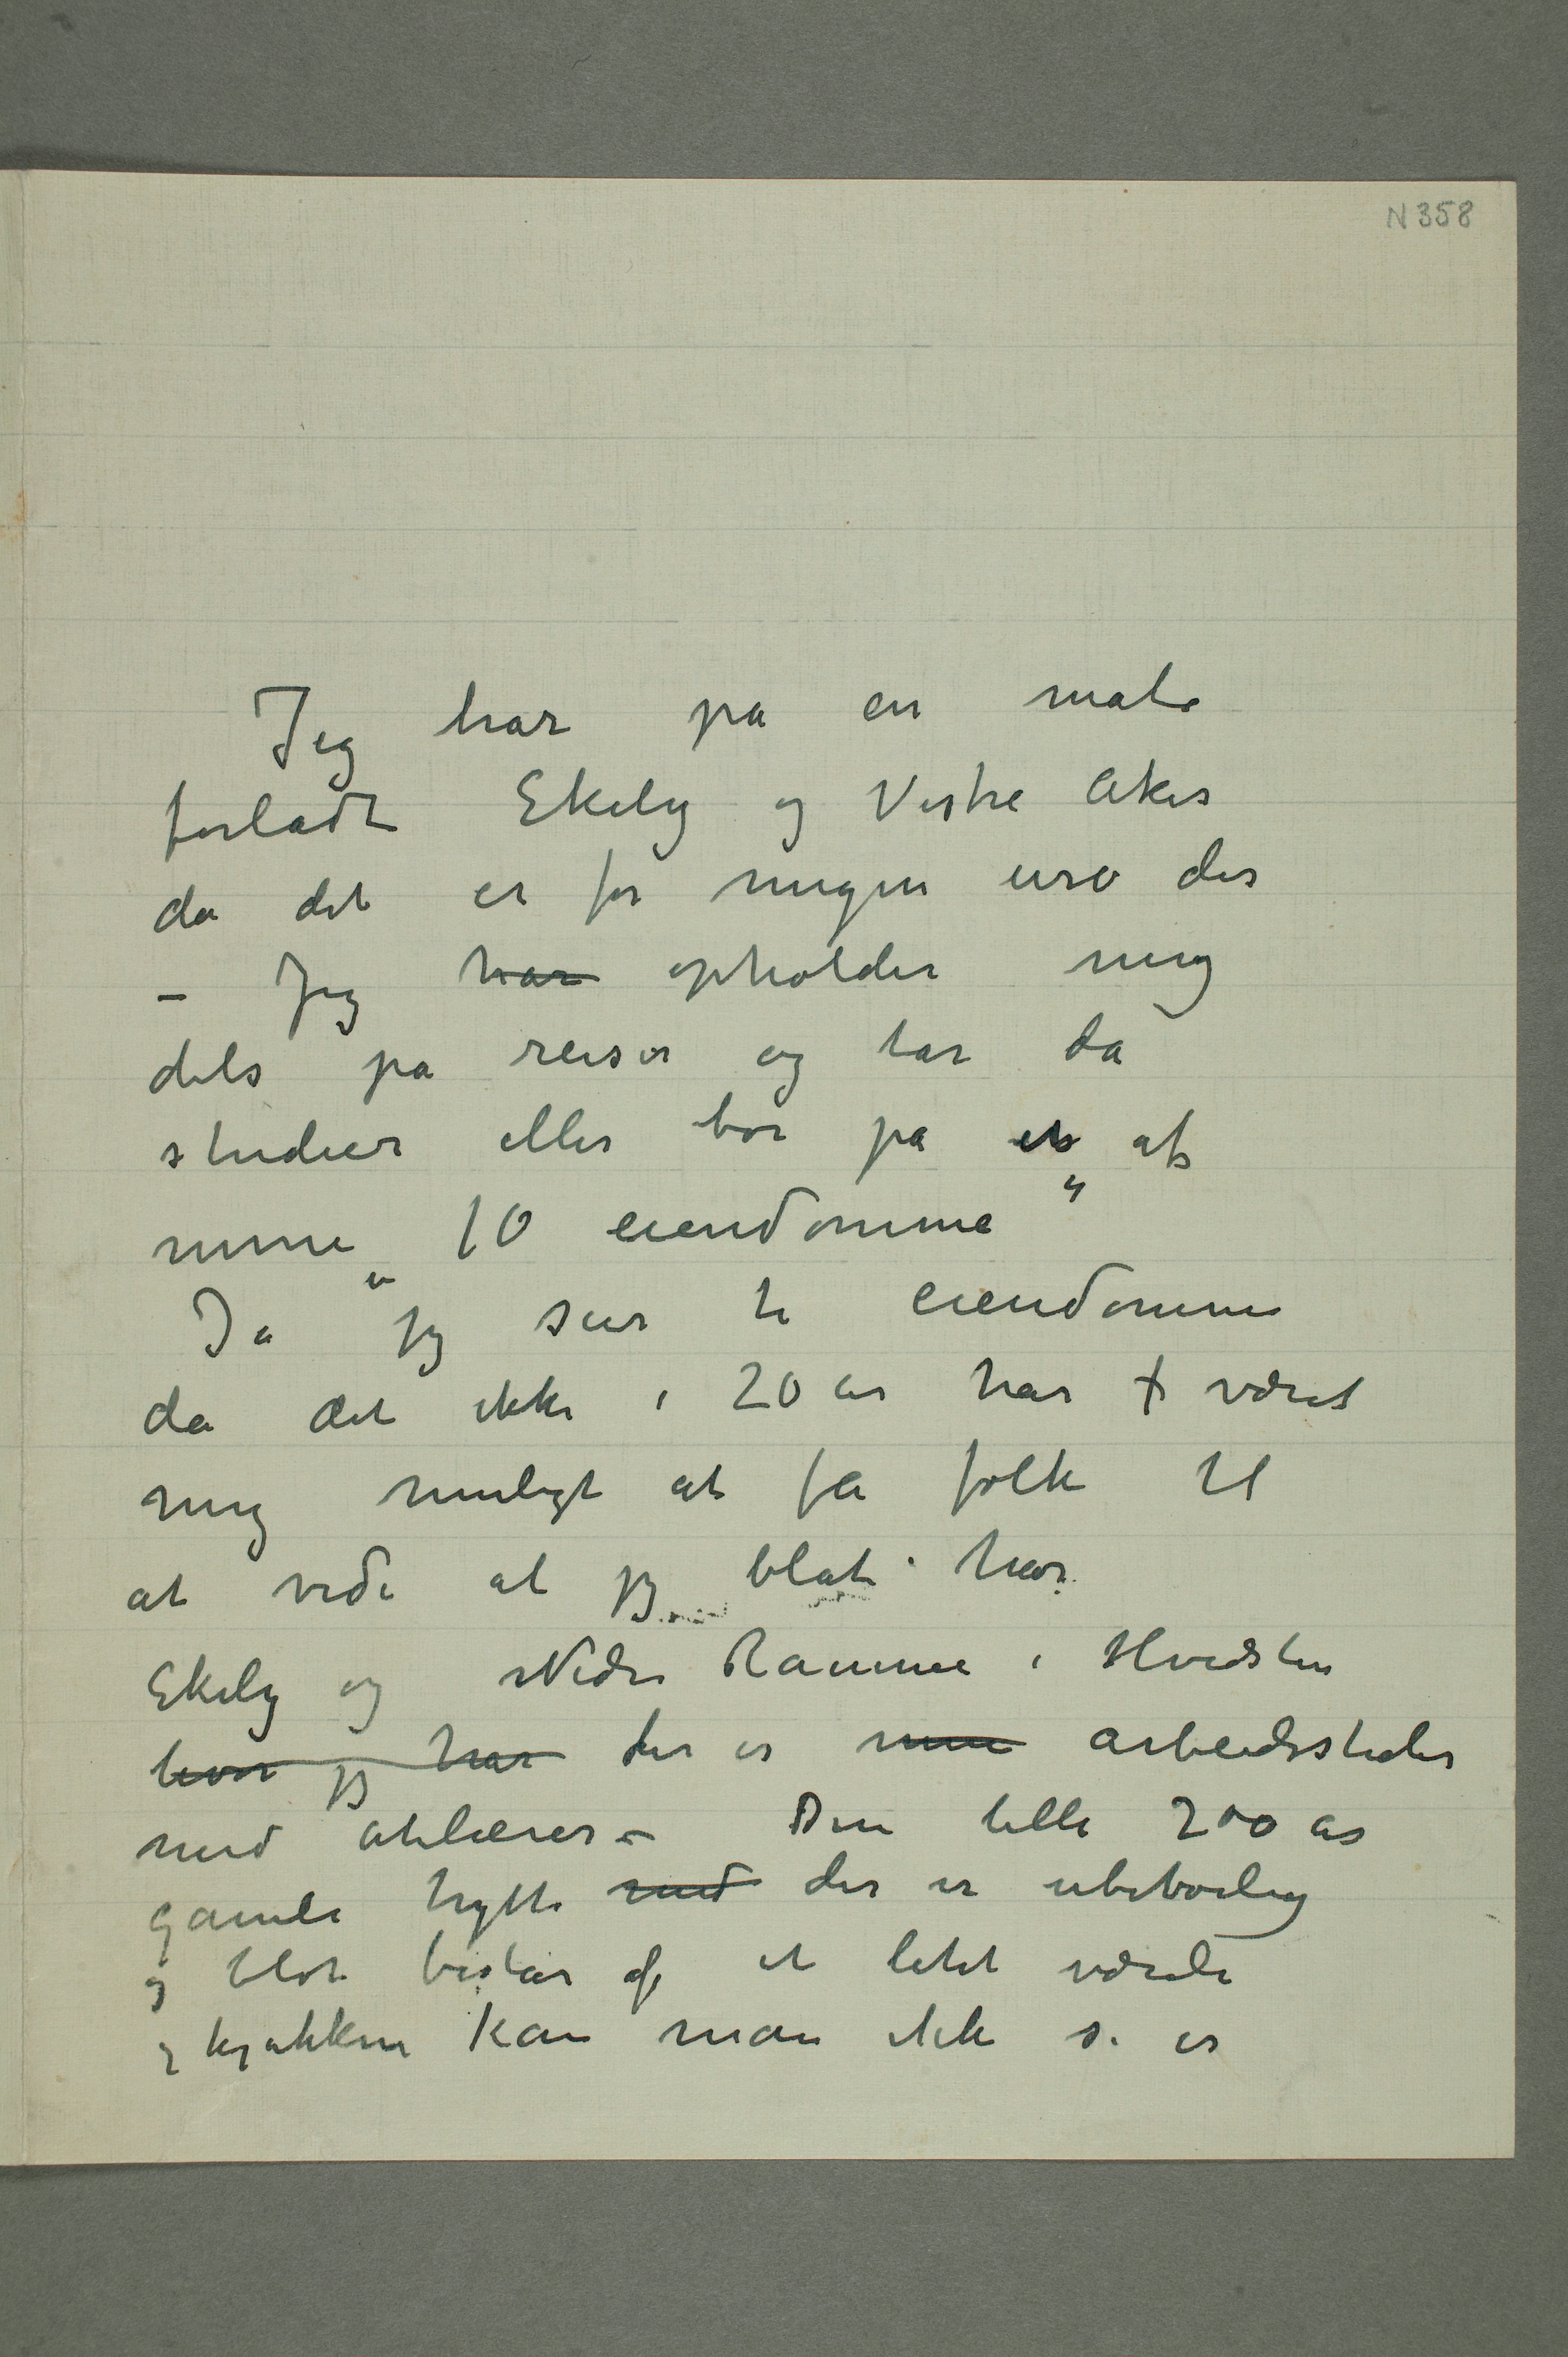 N 358
Jeg har på en måte
forladt Ekely og Vestre Aker
da det er for megen uro der
– Jeg har opholder mig
dels på reiser og tar da
studier eller bor på et af
mine „10 eiendomme“
Ja jeg sier ti eiendomme
da det ikke i 20 år har været
mig muligt at få folk til
at vide at jeg blot har
Ekely og Nedre Ramme i Hvidsten
hvor jeg har der er mine arbeidssteder
med atelierer – Den lille 200 år
gamle hytte med der er ubeboelig
og blot består af et litet værelse
og kjøkken kan man ikke si er